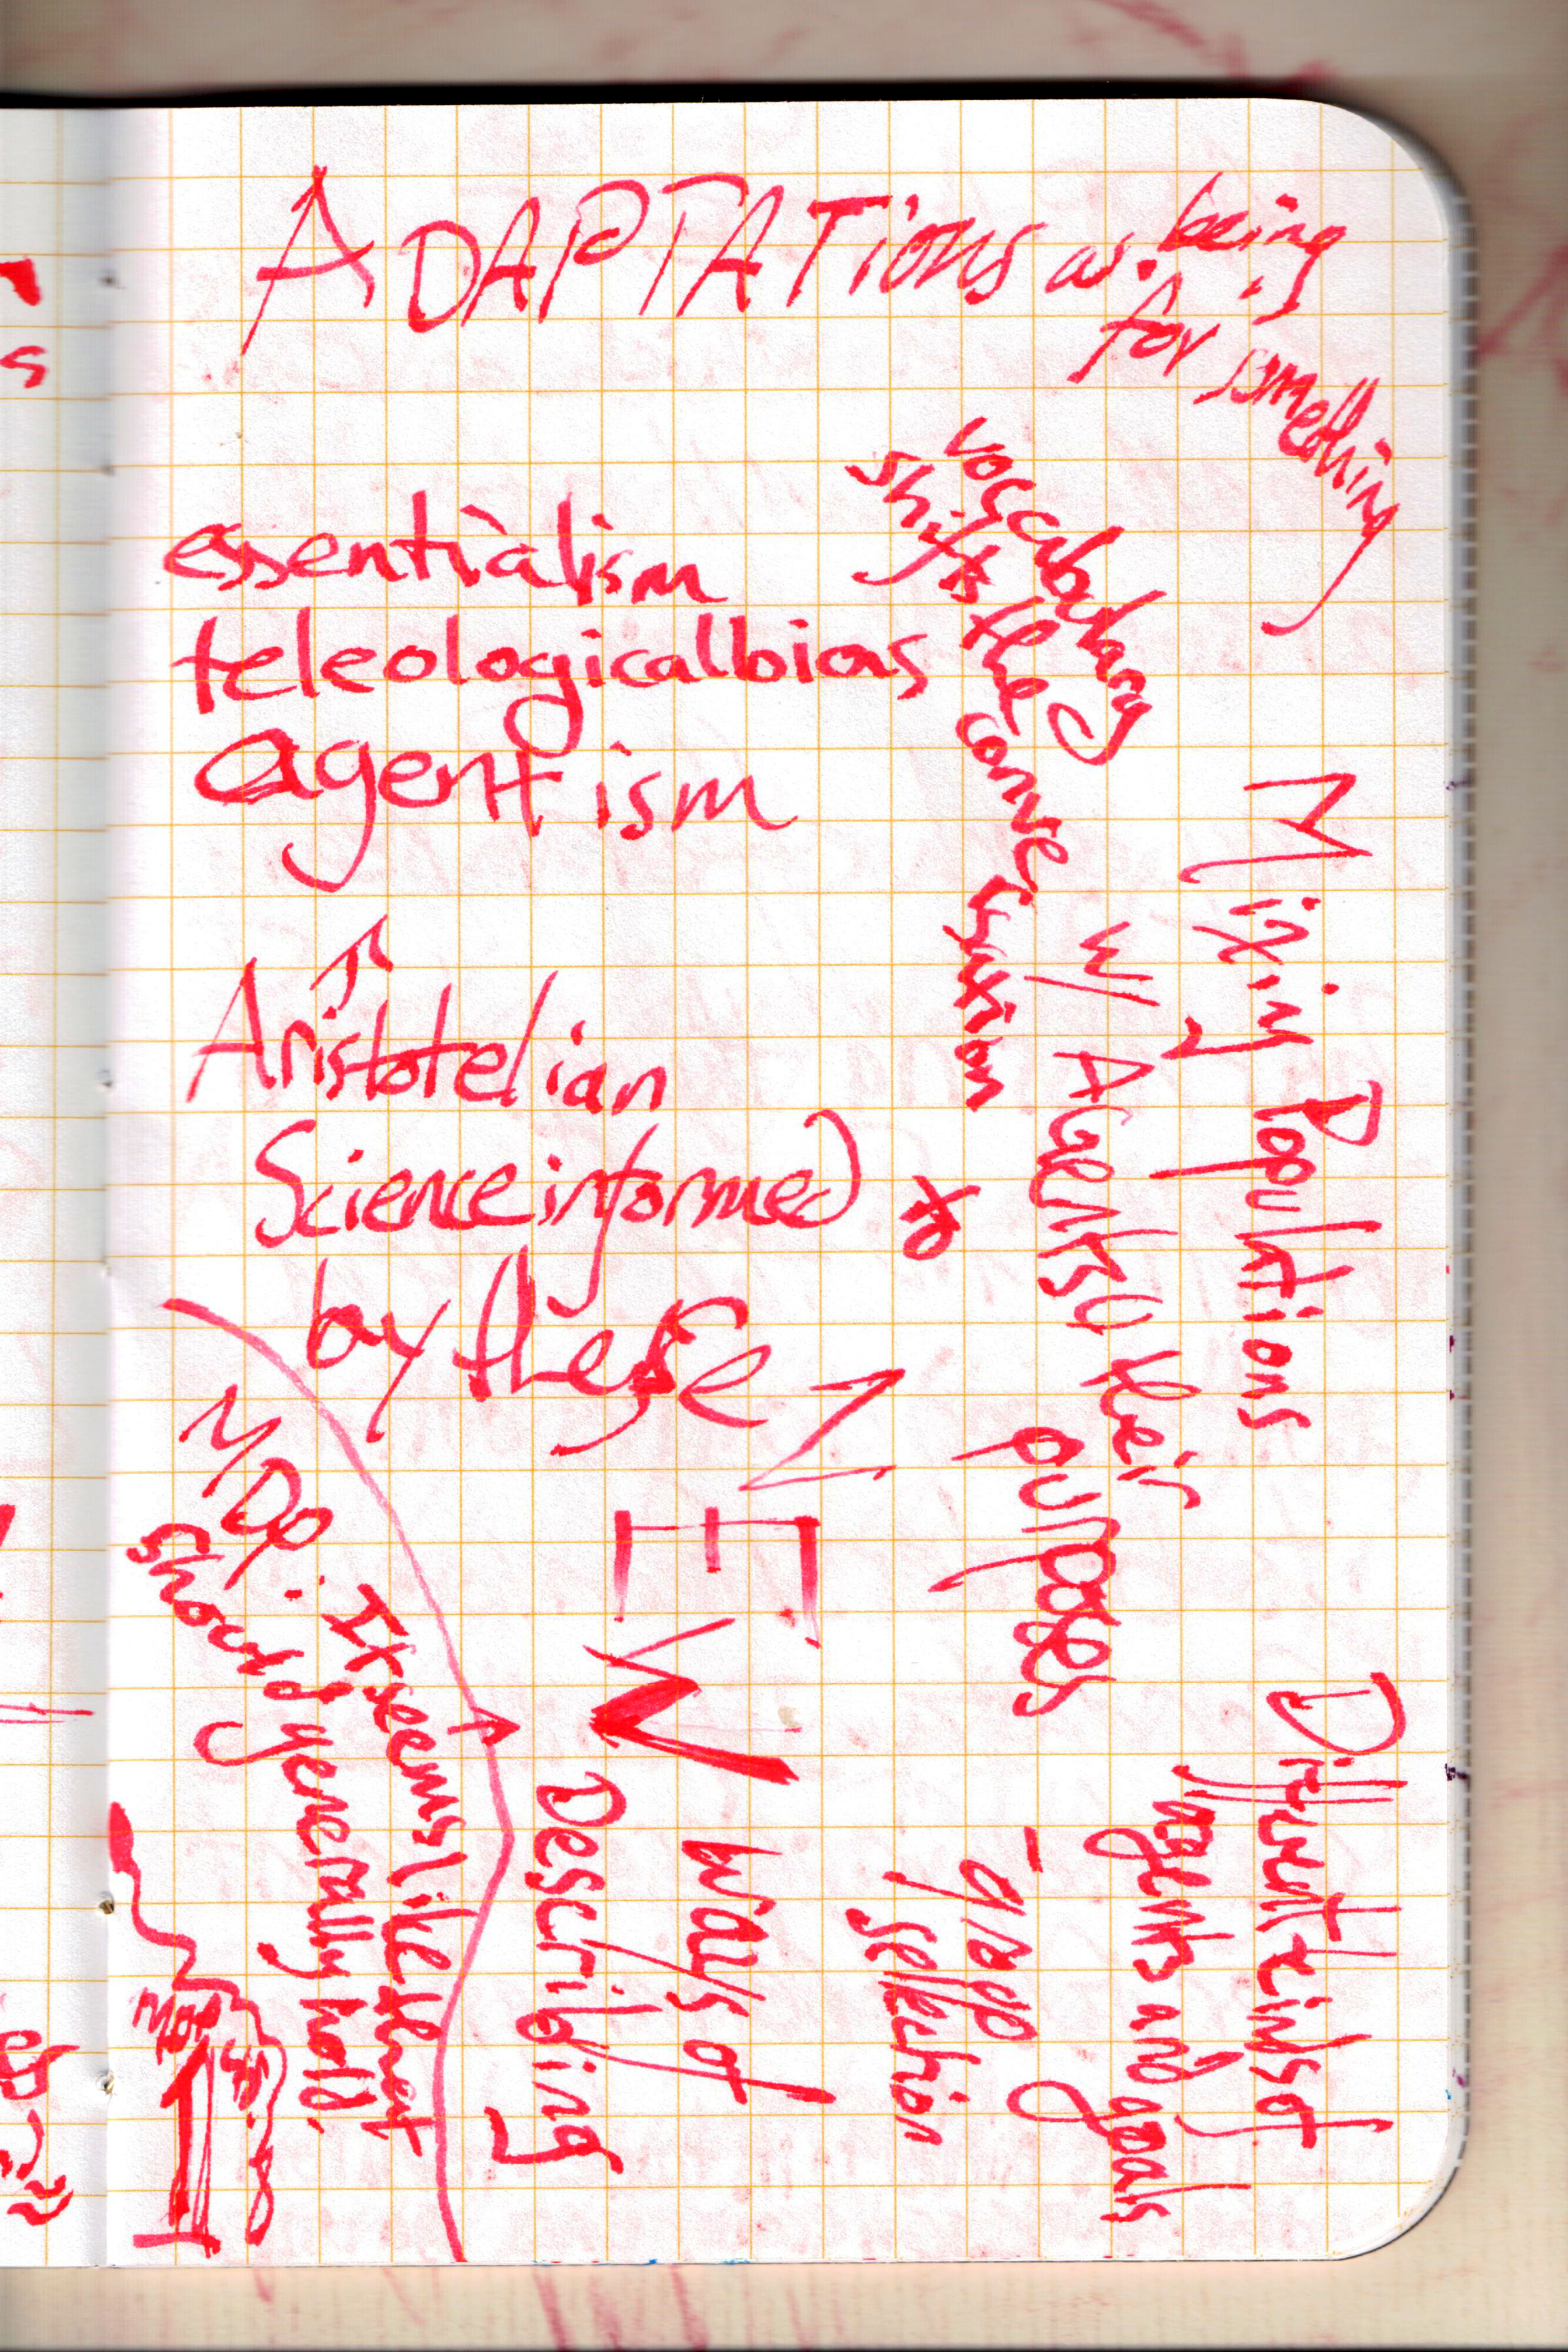 ADAPTATions as being
for something
vocabulary
shifts the conversation
essentialism
teleological bias
agentism
Aristotelian
Science informed
by these
Mixing Populations
w/ AGents & their
purposes
Different kinds of
agents and goals
- group
selection
NEW
ways of
Describing
It seems like that
should generally hold.